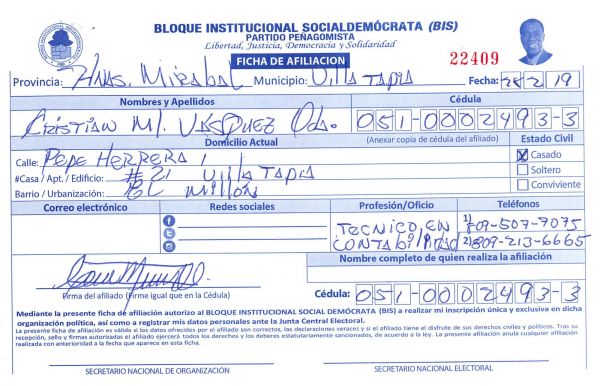 BLOQUE INSTITUCIONAL SOCIALDEMÓCRATA (BIS)
PARTIDO PEÑAGOMISTA
Libertad, Justicia, Democracia y Solidaridad
FICHA DE AFILIACION
22409
Provincia: Hnas. Mirabal Municipio: Villa Tapia Fecha: 28 2 19
Nombres y Apellidos Cédula
Cristian Ml. Vasquez Oda. 051-0002493-3
Domicilio Actual (Anexar copia de cédula del afiliado) Estado Civil
Calle: Pepe Herrera X Casado
#Casa / Apt. / Edificio: #21 Villa Tapia Soltero
Barrio / Urbanización: El Millón Conviviente
Correo electrónico Redes sociales Profesión/Oficio Teléfonos
Tecnico en 1) 809-507-7075
Contabilidad 2) 809-213-6665
Nombre completo de quien realiza la afiliación
Firma del afiliado (Firme igual que en la Cédula) Cédula: 051-0002493-3
Mediante la presente ficha de afiliación autorizo al BLOQUE INSTITUCIONAL SOCIAL DEMÓCRATA (BIS) a realizar mi inscripción única y exclusiva en dicha
organización política, así como a registrar mis datos personales ante la Junta Central Electoral.
La presente ficha de afiliación es válida si los datos ofrecidos por el afiliado son correctos, las declaraciones veraces y si el afiliado tiene el disfrute de sus derechos civiles y políticos. Tras su
recepción, sello y firmas autorizadas el afiliado ejercerá todos los derechos y los deberes estatutariamente sancionados, de acuerdo a la ley. La presente afiliación anula cualquier afiliación
realizada con anterioridad a la fecha que aparece en esta ficha.
SECRETARIO NACIONAL DE ORGANIZACIÓN SECRETARIO NACIONAL ELECTORAL